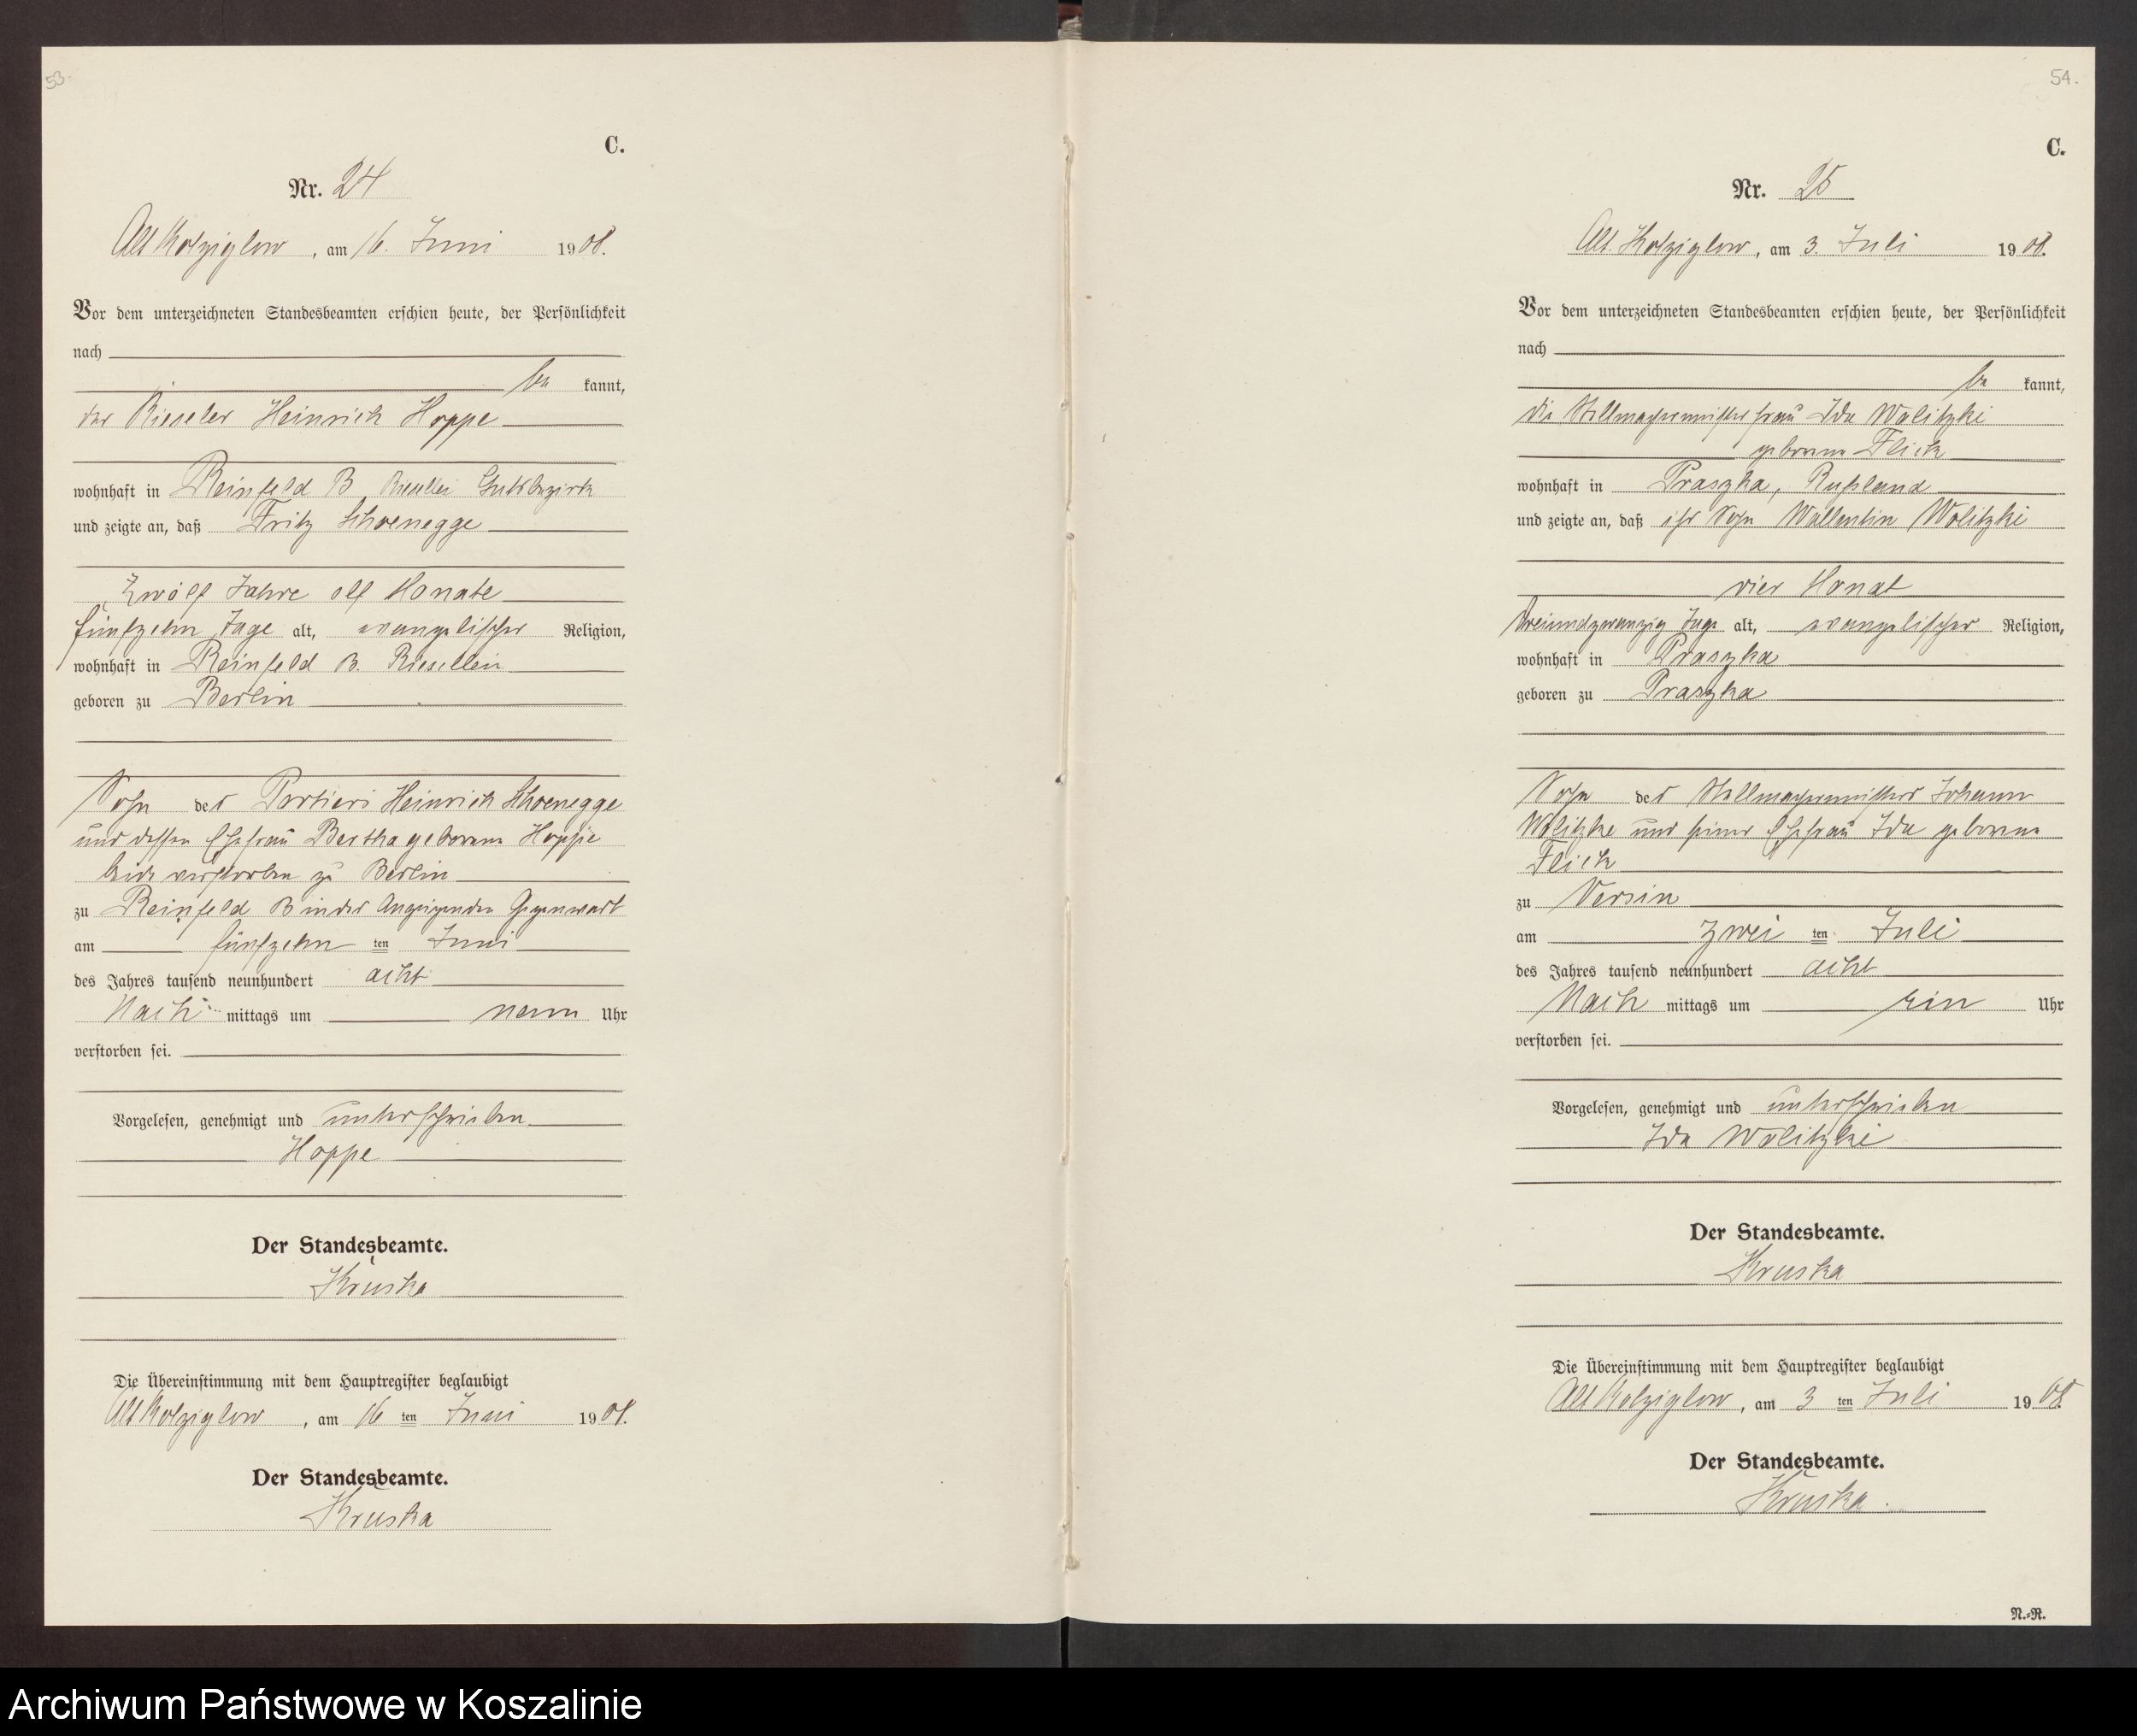 53.
C.
Nr. 24
Alt Kolziglow, am 16. Juni 1908.
Vor dem unterzeichneten Standesbeamten erschien heute, der Persönlichkeit
nach
be kannt,
der Rieseler Heinrich Hoppe
wohnhaft in Reinfeld B Gutsbezirk
und zeigte an, daß Fritz Schoenegge
Zwölf Jahre elf Monate
fünfzehn Tage alt, evangelischer Religion,
wohnhaft in Reinfeld B.
geboren zu Berlin
Sohn des Portiers Heinrich Schoenegge
und dessen Ehefrau Bertha geborene Hoppe
beide verstorben zu Berlin
zu Reinfeld B in des Anzeigenden Gegenwart
am fünfzehn ten Juni
des Jahres tausend neunhundert acht
Nach mittags um neun Uhr
verstorben sei.
Vorgelesen, genehmigt und unterschrieben
Hoppe
Der Standesbeamte.
Kruska
Die Übereinstimmung mit dem Hauptregister beglaubigt
Alt Kolziglow, am 16 ten Juni 1908.
Der Standesbeamte.
Kruska
54.
C.
Nr. 25
Alt Kolziglow, am 3. Juli 1908.
Vor dem unterzeichneten Standesbeamten erschien heute, der Persönlichkeit
nach
be kannt,
die Stellmachermeisterfrau Ida Wolitzki
geborene Flick
wohnhaft in Praszka, Rußland
und zeigte an, daß ihr Sohn Wallentin Wolitzki
vier Monat
dreiundzwanzig Tage alt, evangelischer Religion,
wohnhaft in Praszka
geboren zu Praszka
Sohn des Stellmachermeisters Johann
Wolitzke und seiner Ehefrau Ida geborene
Flick
zu Versin
am zwei ten Juli
des Jahres tausend neunhundert acht
Nach mittags um ein Uhr
verstorben sei.
Vorgelesen, genehmigt und unterschrieben
Ida Wolitzki
Der Standesbeamte.
Kruska
Die Übereinstimmung mit dem Hauptregister beglaubigt
Alt Kolziglow, am 3 ten Juli 1908
Der Standesbeamte.
Kruska.
N.-R.
Archiwum Państwowe w Koszalinie